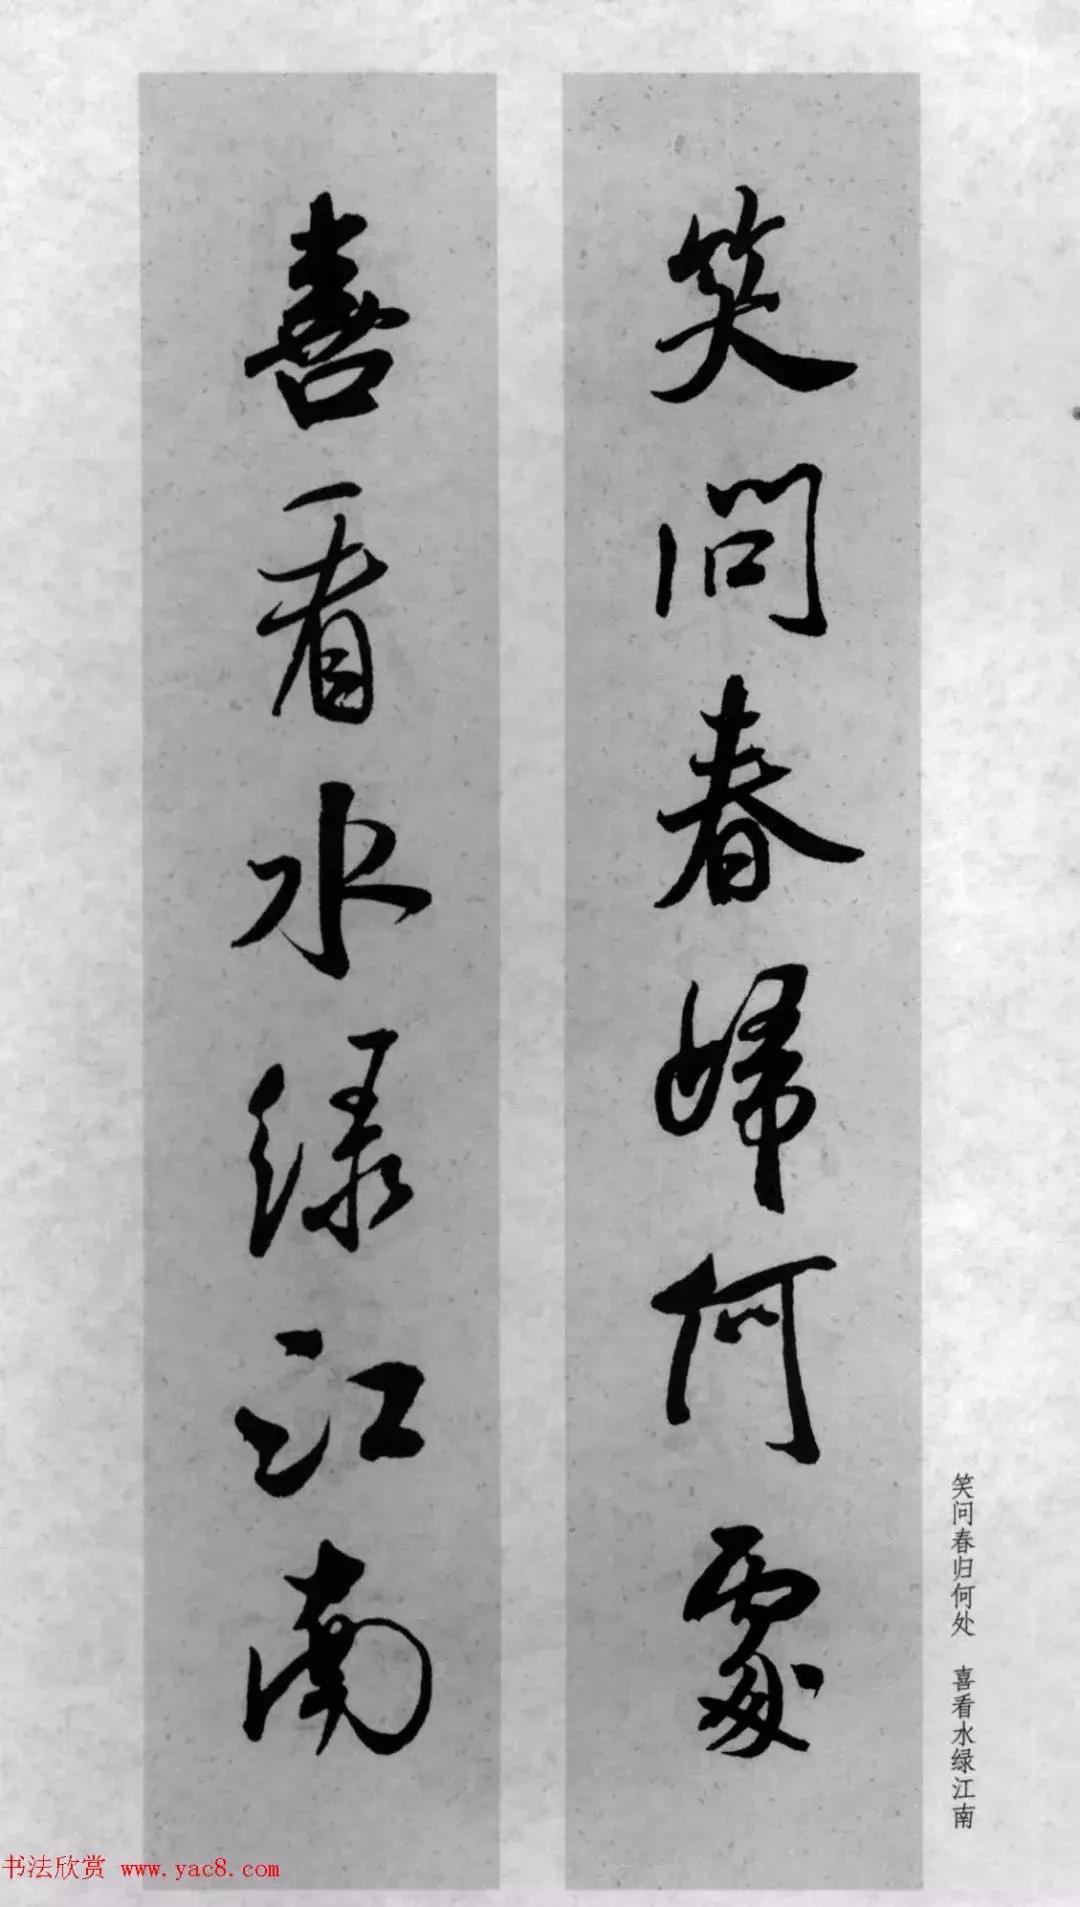 笑问春歸何處
喜看水绿江南
笑问春归何处 喜看水绿江南
书法欣赏 www.yac8.com